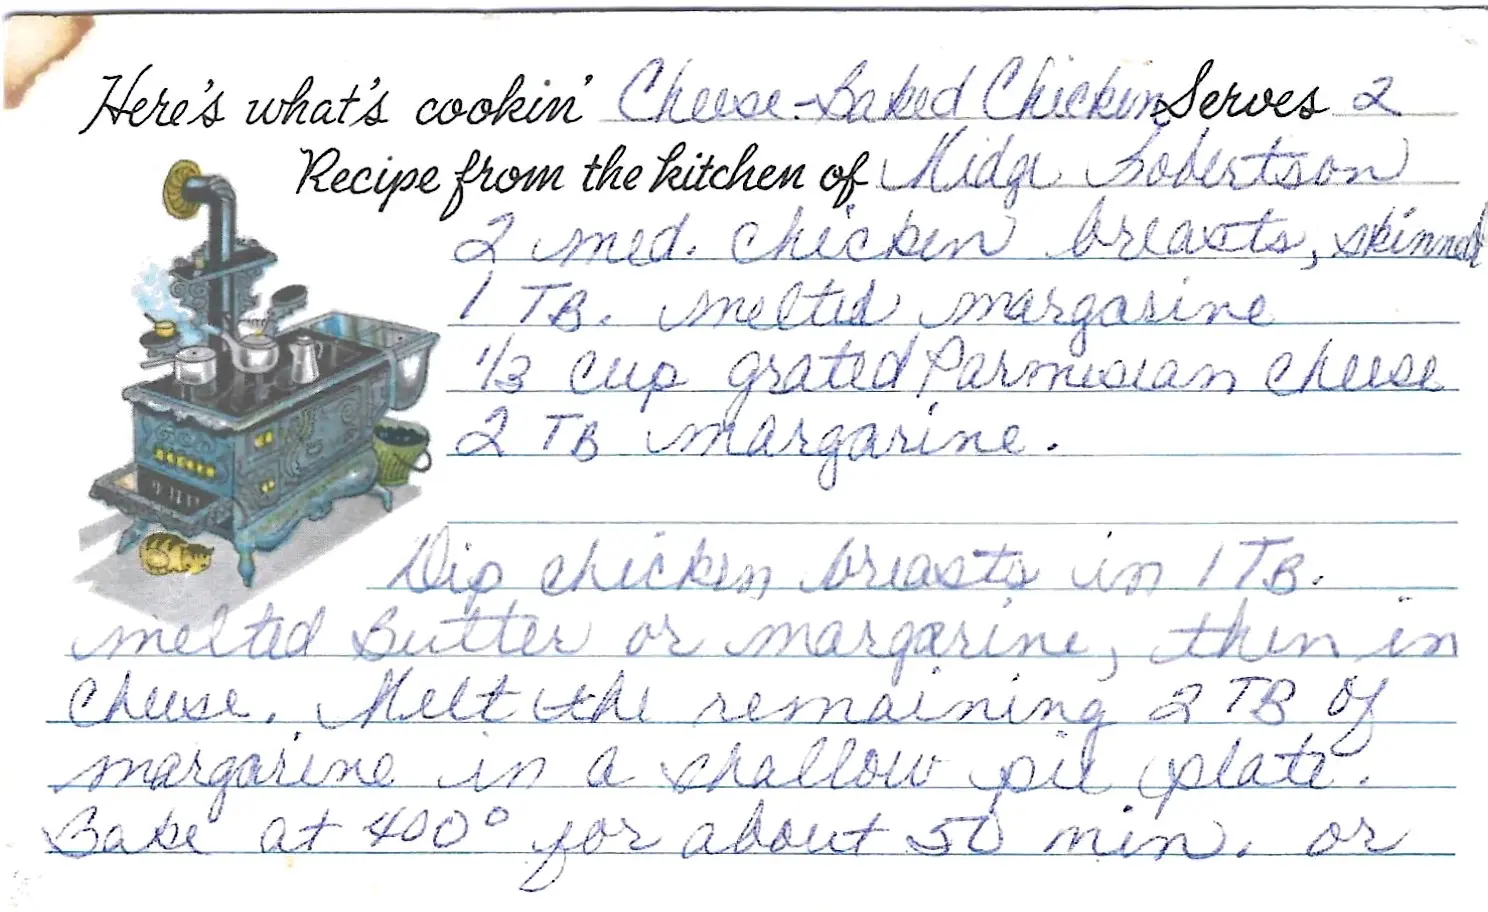 Here's what's cookin' Cheese-Baked Chicken Serves 2
Recipe from the kitchen of Midge Robertson
2 med. chicken breasts, skinned
1 TB. melted margarine
1/3 cup grated Parmesian cheese
2 TB margarine.
Dip chicken breasts in 1 TB.
melted Butter or margarine, then in
Cheese. Melt the remaining 2 TB of
margarine in a shallow pie plate.
Bake at 400° for about 50 min. or